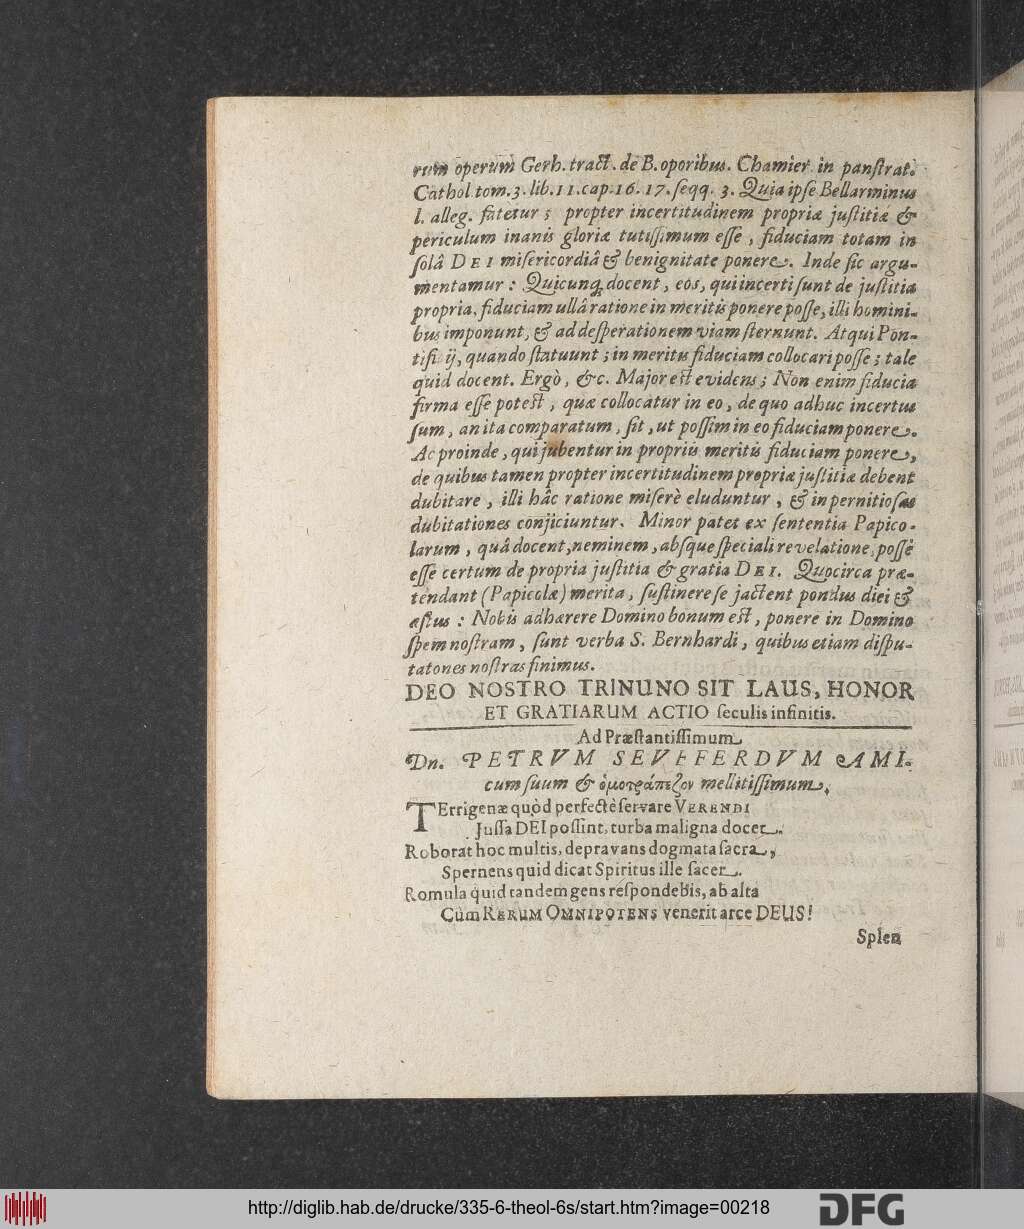 rum operum Gerh. tract. de B. oporibus. Chamier in panstrat.
Cathol tom. 3. lib. 11. cap. 16. 17. seqq. 3. Quia ipse Bellarminus
l. alleg. fatetur; propter incertitudinem propriæ justitiæ &
periculum inanis gloriæ tutissimum esse, fiduciam totam in
solâ DEI misericordiâ & benignitate ponere. Inde sic argu-
mentamur: Quicunq; docent, eos, qui incerti sunt de justitia
propria, fiduciam ullâ ratione in meritis ponere posse, illi homini-
bus imponunt, & ad desperationem viam sternunt. Atqui Pon-
tificij, quando statuunt; in meritis fiduciam collocari posse; tale
quid docent. Ergò, &c. Major est evidens; Non enim fiducia
firma esse potest, quæ collocatur in eo, de quo adhuc incertus
sum, an ita comparatum, sit, ut possim in eo fiduciam ponere.
Ac proinde, qui jubentur in propriis meritis fiduciam ponere,
de quibus tamen propter incertitudinem propriæ justitiæ debent
dubitare, illi hâc ratione miserè eluduntur, & in pernitiosas
dubitationes conjiciuntur. Minor patet ex sententia Papico-
larum, quâ docent, neminem, absque speciali revelatione, posse
esse certum de propria justitia & gratia DEI. Quocirca præ-
tendant (Papicolæ) merita, sustinere se jactent pondus diei &
æstus: Nobis adhærere Domino bonum est, ponere in Domino
spem nostram, sunt verba S. Bernhardi, quibus etiam dispu-
tatones nostras finimus.
DEO NOSTRO TRINUNO SIT LAUS, HONOR
ET GRATIARUM ACTIO seculis infinitis.
Ad Præstantissimum
Dn. PETRVM SEVFFERDVM AMI-
cum suum & ὁμοτράπεζον mellitissimum.
TErrigenæ quòd perfectè servare VERENDI
Jussa DEI possint, turba maligna docet.
Roborat hoc multis, depravans dogmata sacra,
Spernens quid dicat Spiritus ille sacer.
Romula quid tandem gens respondebis, ab alta
Cùm RERUM OMNIPOTENS venerit arce DEUS!
Splen
http://diglib.hab.de/drucke/335-6-theol-6s/start.htm?image=00218
DFG